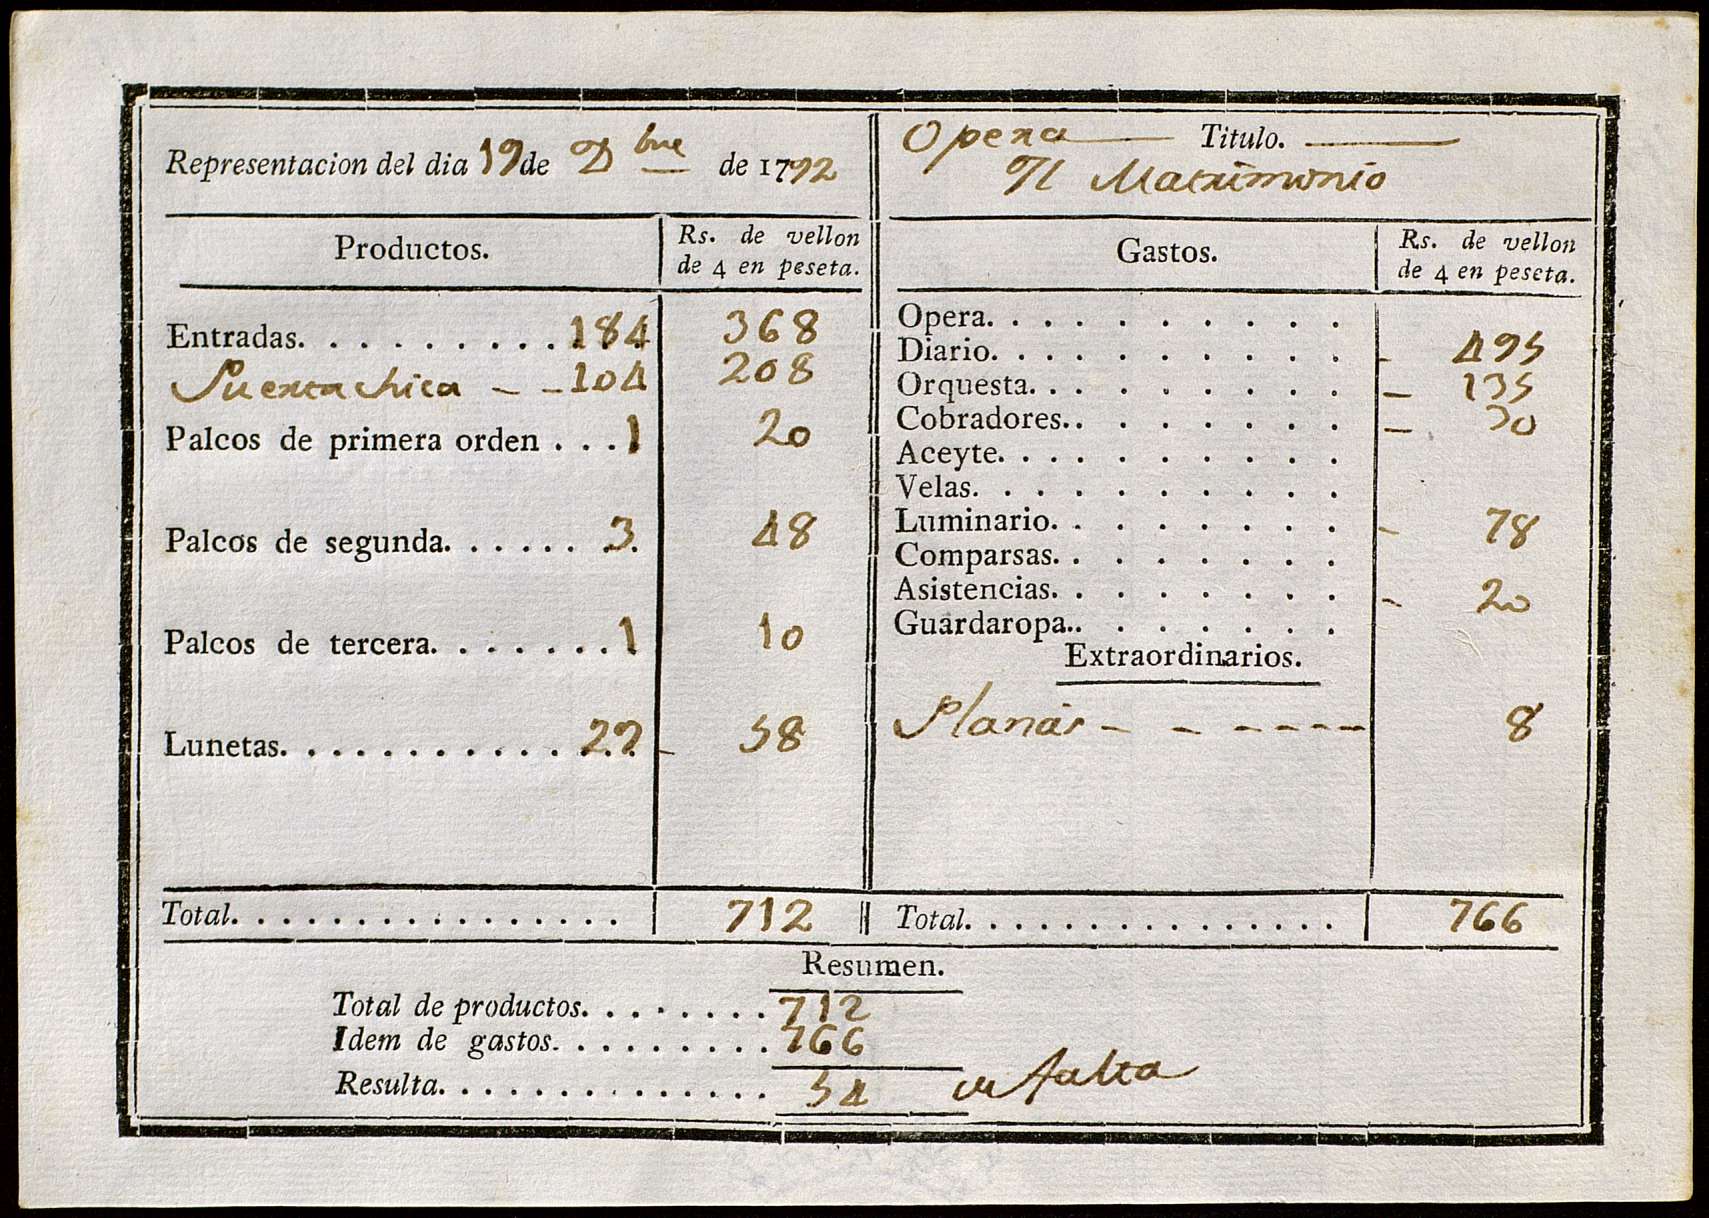 Representacion del dia 19 de Dbre de 1792
Opera Titulo.
Il Matrimonio
Productos. Rs. de vellon de 4 en peseta.
Gastos. Rs. de vellon de 4 en peseta.
Entradas. 184 368
Puerta chica 104 208
Palcos de primera orden 1 20
Palcos de segunda. 3 48
Palcos de tercera. 1 10
Lunetas. 29 58
Total. 712
Opera.
Diario. 495
Orquesta. 135
Cobradores. 30
Aceyte.
Velas.
Luminario. 78
Comparsas.
Asistencias. 20
Guardaropa.
Extraordinarios.
Planas 8
Total. 766
Resumen.
Total de productos. 712
Idem de gastos. 766
Resulta. 54 de falta